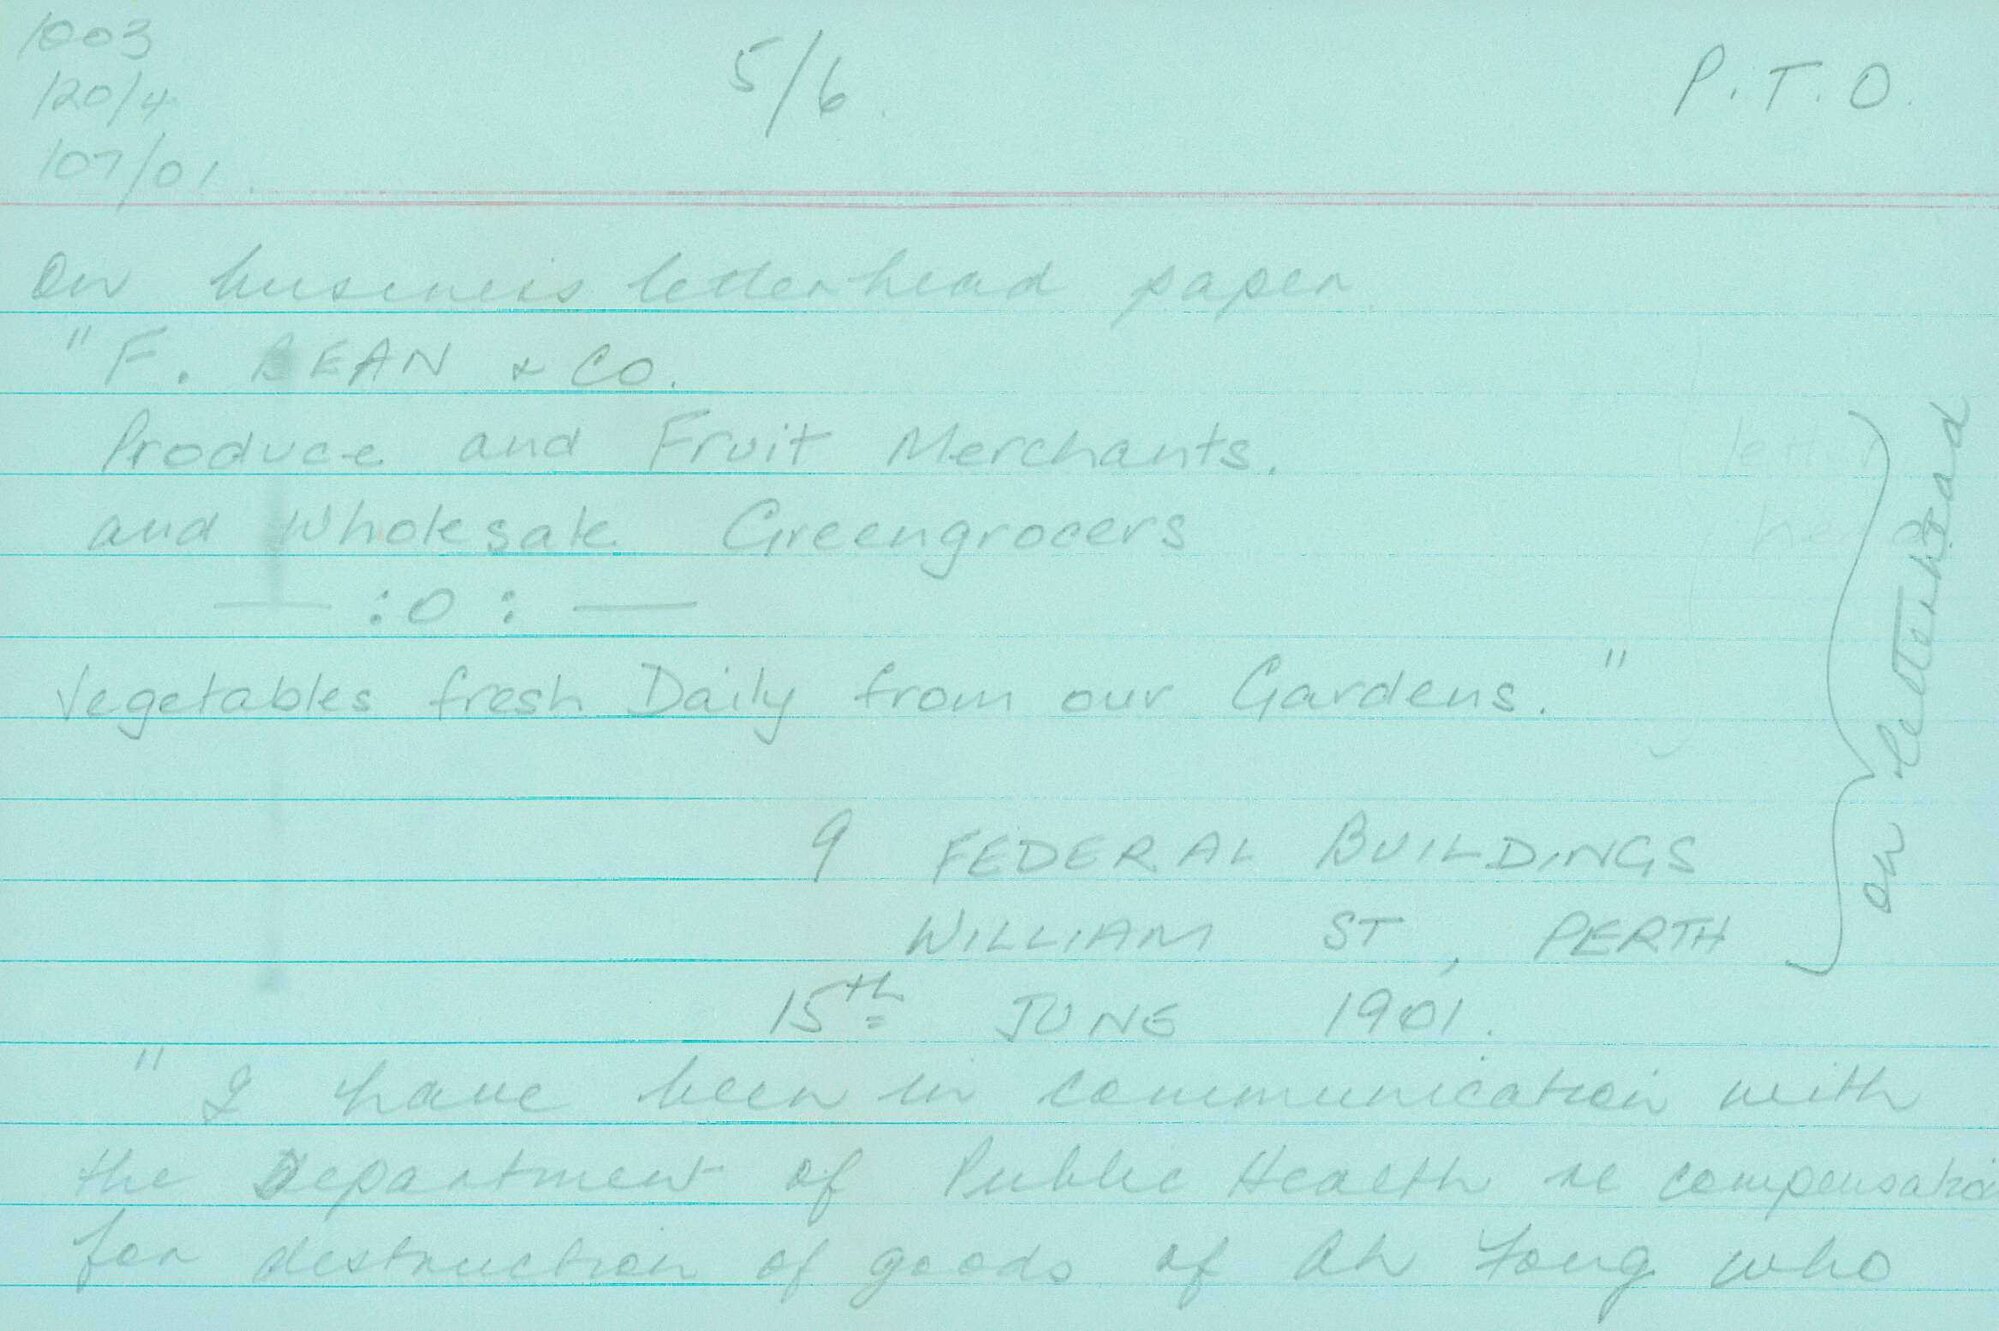 1003
120/4
107/01.
5/6.
P.T.O.
On business letterhead paper.
"F. BEAN & CO.
Produce and Fruit Merchants.
and Wholesale Greengrocers
— :0: —
Vegetables fresh Daily from our Gardens."
on letterhead
9 FEDERAL BUILDINGS
WILLIAM ST, PERTH
15th JUNE 1901.
"I have been in communication with
the Department of Public Health re compensation
for destruction of goods of Ah Fong who